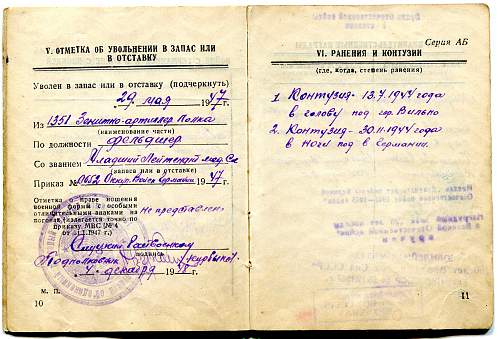 V. ОТМЕТКА ОБ УВОЛЬНЕНИИ В ЗАПАС ИЛИ
В ОТСТАВКУ
Уволен в запас или в отставку (подчеркнуть)
29 мая 1947г.
Из 1351 Зенитно-артилер Полка
(наименование части)
По должности фельдшер
Со званием Младший Лейтенант мед. Сл
(запаса или в отставке)
Приказ №0662 Оккуп. Войск Германии 1947
Отметка о праве ношения
военной формы с особыми
отличительными знаками на
погонах (излагается точно по
приказу МВС № 4
от 31.I.1947 г.)
не представлено
Слуцкий Райвоенком
подпись
Подполковник
4 декабря 1948 г.
М. П.
10
Серия АБ
VI. РАНЕНИЯ И КОНТУЗИИ
(где, когда, степень ранения)
1 Контузия - 13.7.1944 года
в голову под гор. Вильно
2. Контузия - 30.11.1944 года
в ноги под в Германии.
11